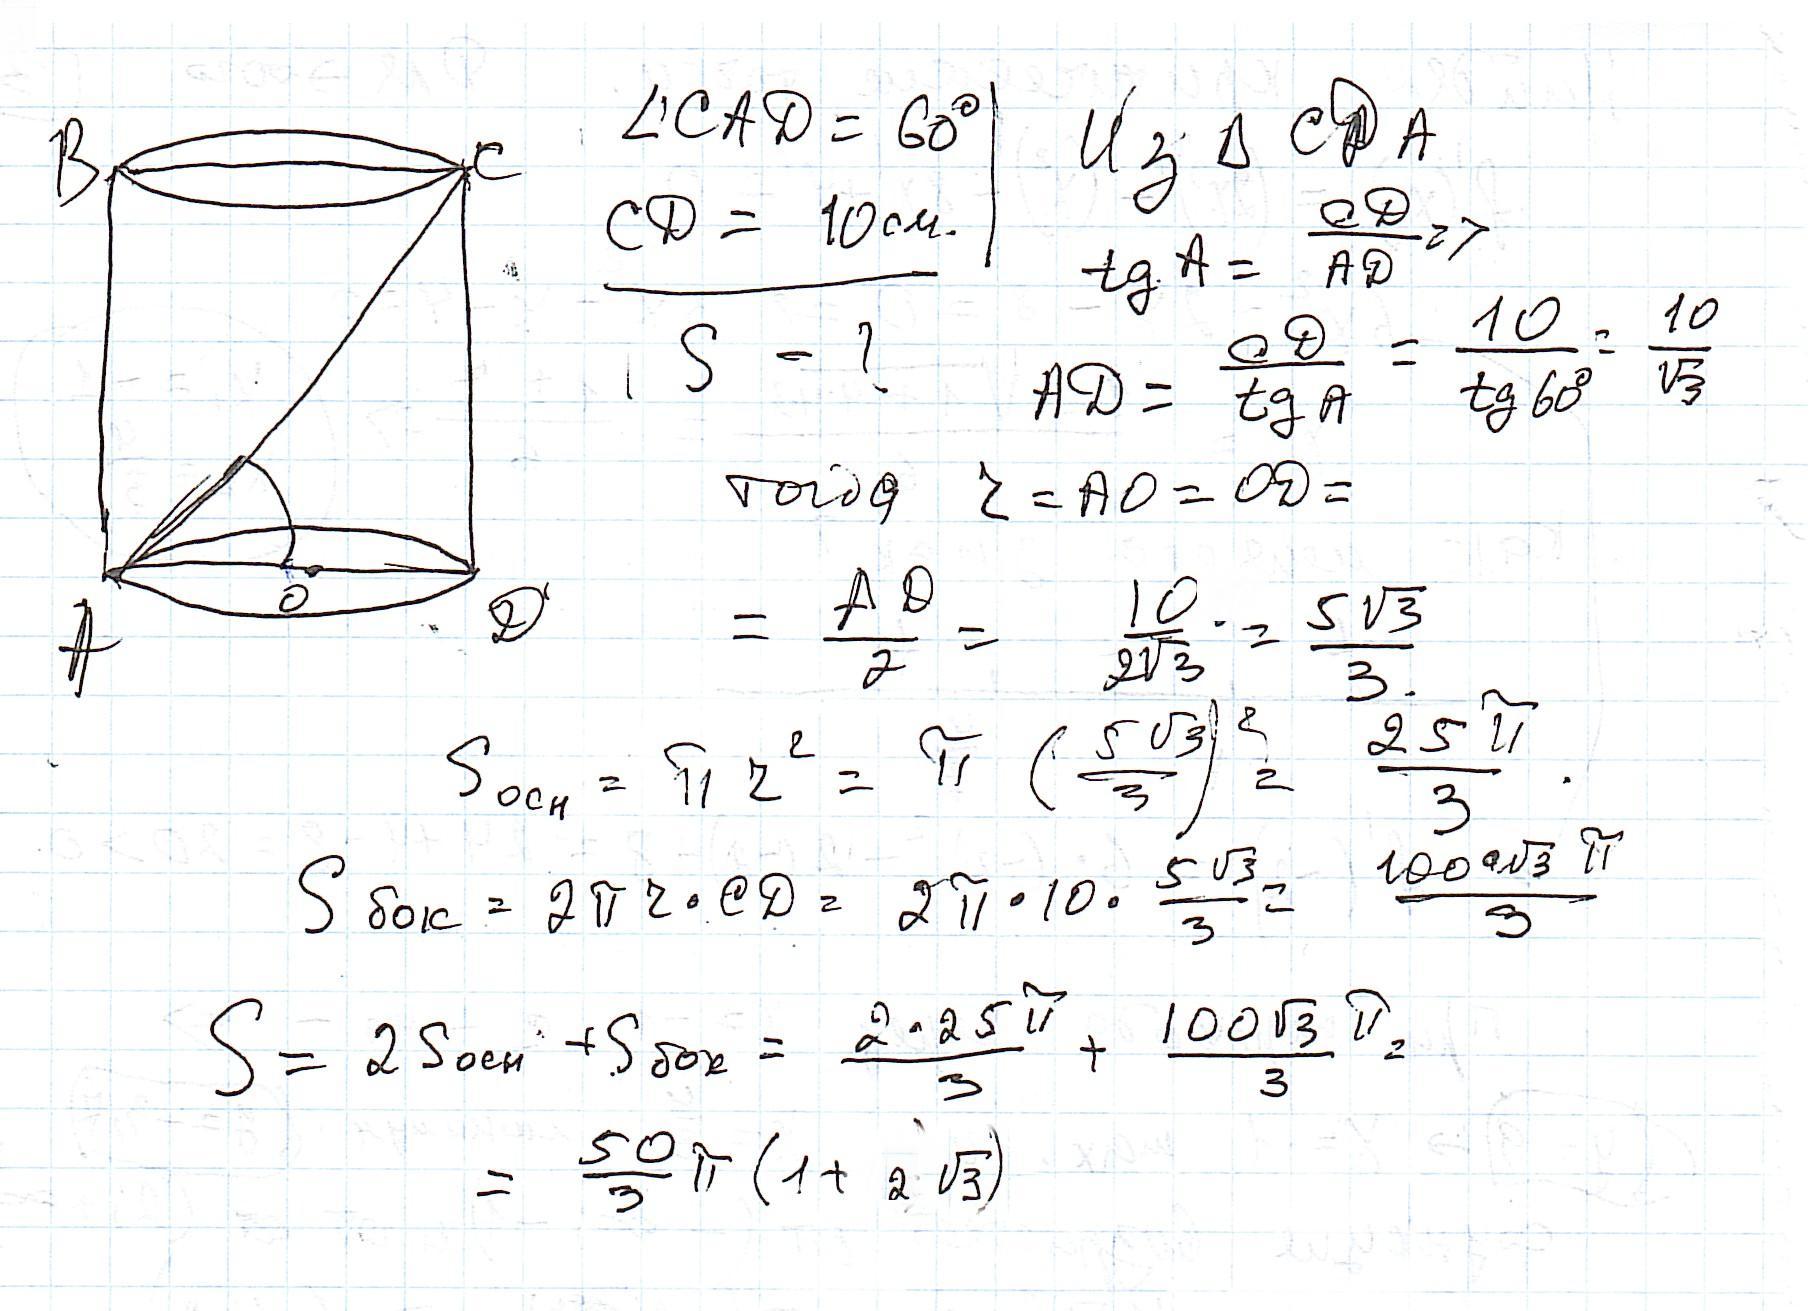 B C
A O D
∠CAD = 60°
CD = 10 см.
S - ?
Из Δ CDA
tg A = CD/AD =>
AD = CD/tg A = 10/tg 60° = 10/√3
тогда r = AO = OD =
= AD/2 = 10/2√3 = 5√3/3.
Sосн = π r² = π (5√3/3)² = 25π/3.
Sбок = 2πr·CD = 2π·10·5√3/3 = 100√3 π/3
S = 2Sосн + Sбок = 2·25π/3 + 100√3/3 π =
= 50/3 π (1 + 2√3)